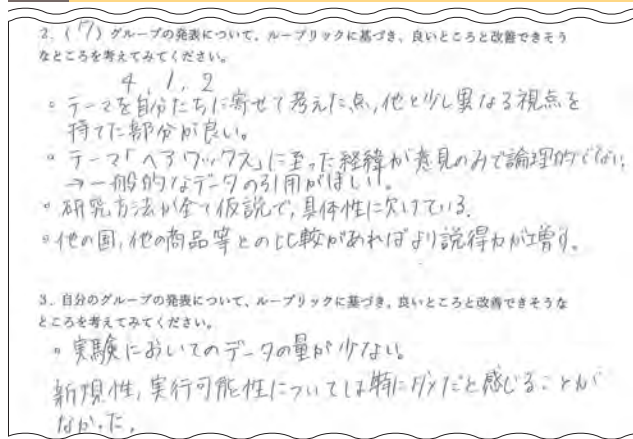 2.（7）グループの発表について、ルーブリックに基づき、良いところと改善できそう
なところを考えてみてください。
4, 1, 2
◦テーマを自分たちに寄せて考えた点，他と少し異なる視点を
持てた部分が良い。
◦テーマ「ヘアワックス」に至った経緯が意見のみで論理的でない。
→一般的なデータの引用がほしい。
◦研究方法が全て仮説で，具体性に欠けている。
◦他の国，他の商品等との比較があればより説得力が増す。
3. 自分のグループの発表について、ルーブリックに基づき、良いところと改善できそうな
ところを考えてみてください。
◦実験においてのデータの量が少ない。
新規性，実行可能性については特にダメだと感じることが
なかった。